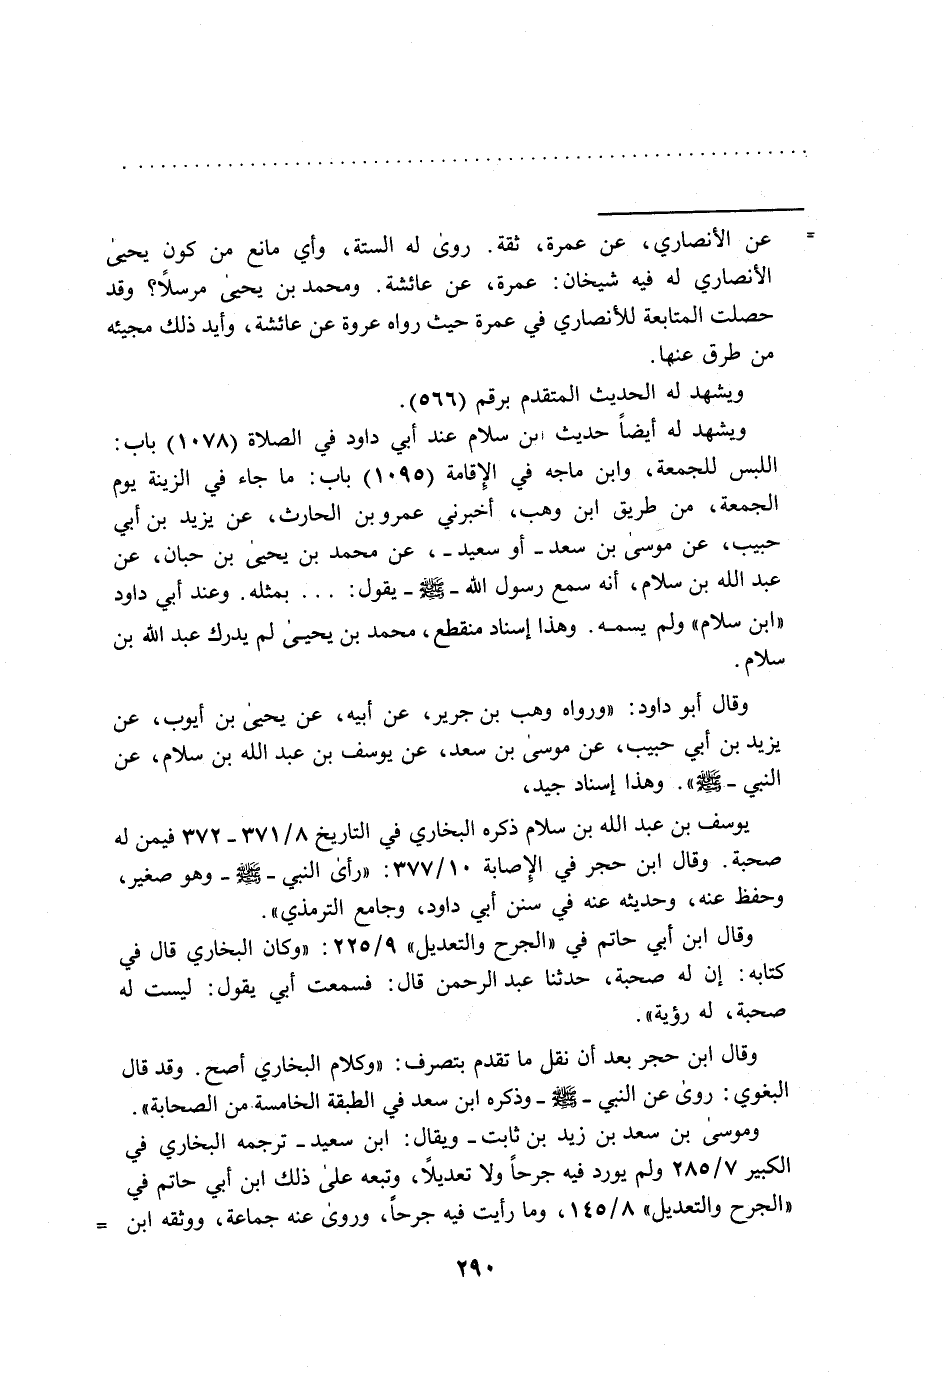 = عن الأنصاري، عن عمرة، ثقة. روىٰ له الستة، وأي مانع من كون يحيىٰ
الأنصاري له فيه شيخان: عمرة، عن عائشة. ومحمد بن يحيىٰ مرسلاً؟ وقد
حصلت المتابعة للأنصاري في عمرة حيث رواه عروة عن عائشة، وأيد ذلك مجيئه
من طرق عنها.
ويشهد له الحديث المتقدم برقم (٥٦٦).
ويشهد له أيضاً حديث ابن سلام عند أبي داود في الصلاة (١٠٧٨) باب:
اللبس للجمعة، وابن ماجه في الإقامة (١٠٩٥) باب: ما جاء في الزينة يوم
الجمعة، من طريق ابن وهب، أخبرني عمرو بن الحارث، عن يزيد بن أبي
حبيب، عن موسىٰ بن سعد ـ أو سعيد ـ، عن محمد بن يحيىٰ بن حبان، عن
عبد الله بن سلام، أنه سمع رسول الله ـ ﷺ ـ يقول: ... بمثله. وعند أبي داود
«ابن سلام» ولم يسمه. وهذا إسناد منقطع، محمد بن يحيىٰ لم يدرك عبد الله بن
سلام.
وقال أبو داود: «ورواه وهب بن جرير، عن أبيه، عن يحيىٰ بن أيوب، عن
يزيد بن أبي حبيب، عن موسىٰ بن سعد، عن يوسف بن عبد الله بن سلام، عن
النبي ـ ﷺ». وهذا إسناد جيد،
يوسف بن عبد الله بن سلام ذكره البخاري في التاريخ ٣٧١/٨ ـ ٣٧٢ فيمن له
صحبة. وقال ابن حجر في الإصابة ٣٧٧/١٠: «رأىٰ النبي ـ ﷺ ـ وهو صغير،
وحفظ عنه، وحديثه عنه في سنن أبي داود، وجامع الترمذي».
وقال ابن أبي حاتم في «الجرح والتعديل» ٢٢٥/٩: «وكان البخاري قال في
كتابه: إن له صحبة، حدثنا عبد الرحمن قال: فسمعت أبي يقول: ليست له
صحبة، له رؤية».
وقال ابن حجر بعد أن نقل ما تقدم بتصرف: «وكلام البخاري أصح. وقد قال
البغوي: روىٰ عن النبي ـ ﷺ ـ وذكره ابن سعد في الطبقة الخامسة من الصحابة».
وموسىٰ بن سعد بن زيد بن ثابت ـ ويقال: ابن سعيد ـ ترجمه البخاري في
الكبير ٢٨٥/٧ ولم يورد فيه جرحاً ولا تعديلاً، وتبعه علىٰ ذلك ابن أبي حاتم في
«الجرح والتعديل» ١٤٥/٨، وما رأيت فيه جرحاً، وروىٰ عنه جماعة، ووثقه ابن =
٢٩٠